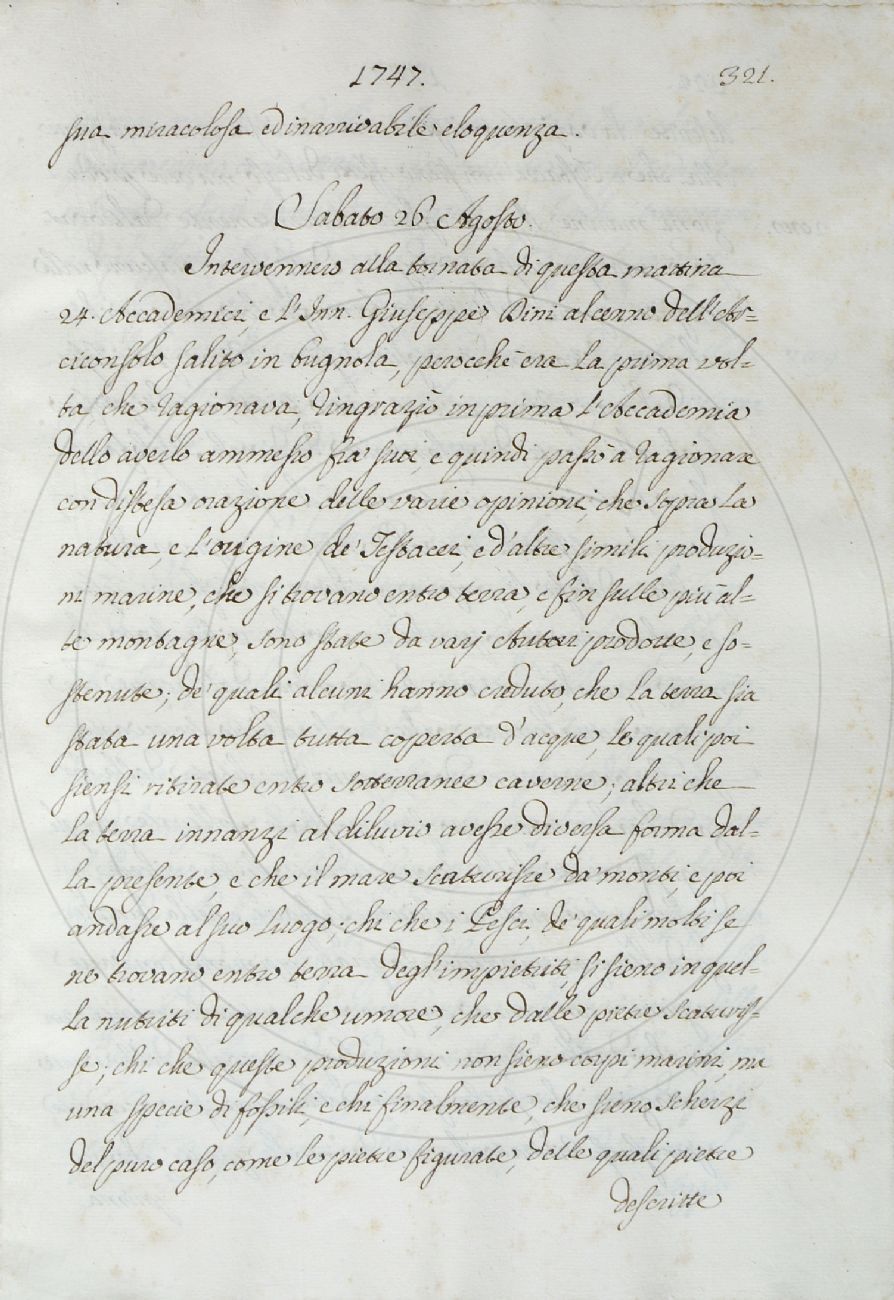 1747.
321.
sua miracolosa ed inarrivabile eloquenza.
Sabato 26 Agosto.
Intervennero alla tornata di questa mattina
24. Accademici, e l'Inn. Giuseppe Bini al cenno dell'Ar=
ciconsolo salito in bugnola, perocchè era la prima vol=
ta, che ragionava, ringraziò in prima l'Accademia
dello averlo ammesso fra suoi e quindi passò a ragionare
con distesa orazione delle varie opinioni, che sopra la
natura, e l'origine de' Testacei, e d'altre simili produzio=
ni marine, che si trovano entro terra, e fin sulle più al=
te montagne, sono state da varj Autori prodotte, e so=
stenute; de' quali alcuni hanno creduto, che la terra sia
stata una volta tutta coperta d'acque, le quali poi
siensi ritirate entro sotterranee caverne; altri che
la terra innanzi al diluvio avesse diversa forma dal=
la presente, e che il mare scaturisse da' monti, e poi
andasse al suo luogo; chi che i Pesci, de' quali molti se
ne trovano entro terra degl'impietriti, si sieno in quel=
la nutriti di qualche umore, che dalle pietre scaturis=
se; chi che queste produzioni non sieno corpi marini, ma
una specie di fossili, e chi finalmente, che sieno scherzi
del puro caso, come le pietre figurate, delle quali pietre
descritte